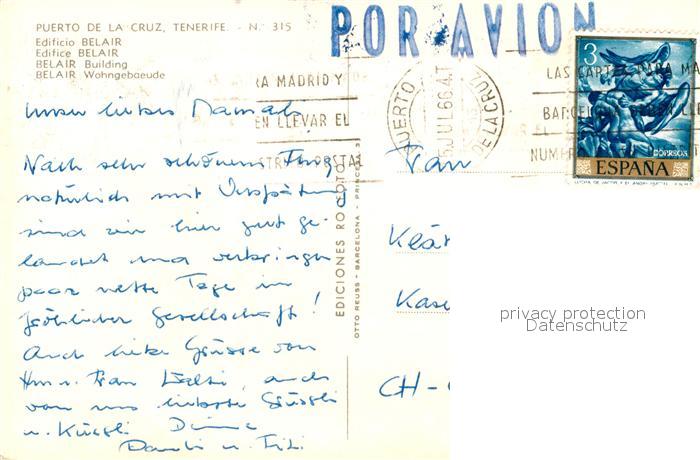 PUERTO DE LA CRUZ, TENERIFE. - N.° 315
Edificio BELAIR
Edifice BELAIR
BELAIR Building
BELAIR Wohngebaeude
POR AVION
RA MADRID Y
EN LLEVAR EL
POSTAL
PUERTO DE LA CRUZ
JUL 66
LAS CARTAS PARA MA
BARCELONA DEBEN LLE
NUMERO
3
CORREOS
ESPAÑA
EDICIONES RO
OTTO REUSS - BARCELONA - PRINC
Unser liebes Mamali,
Nach sehr schönem Flug,
natürlich mit Verspätung
sind wir hier gut ge-
landet und verbringen
paar nette Tage in
fröhlicher Gesellschaft!
Auch liebe Grüsse von
Hrn u. Frau, auch
von uns liebste Grüssli
u. Küssli Deine
u.
Frau
Klä
Kas
CH-
privacy protection
Datenschutz